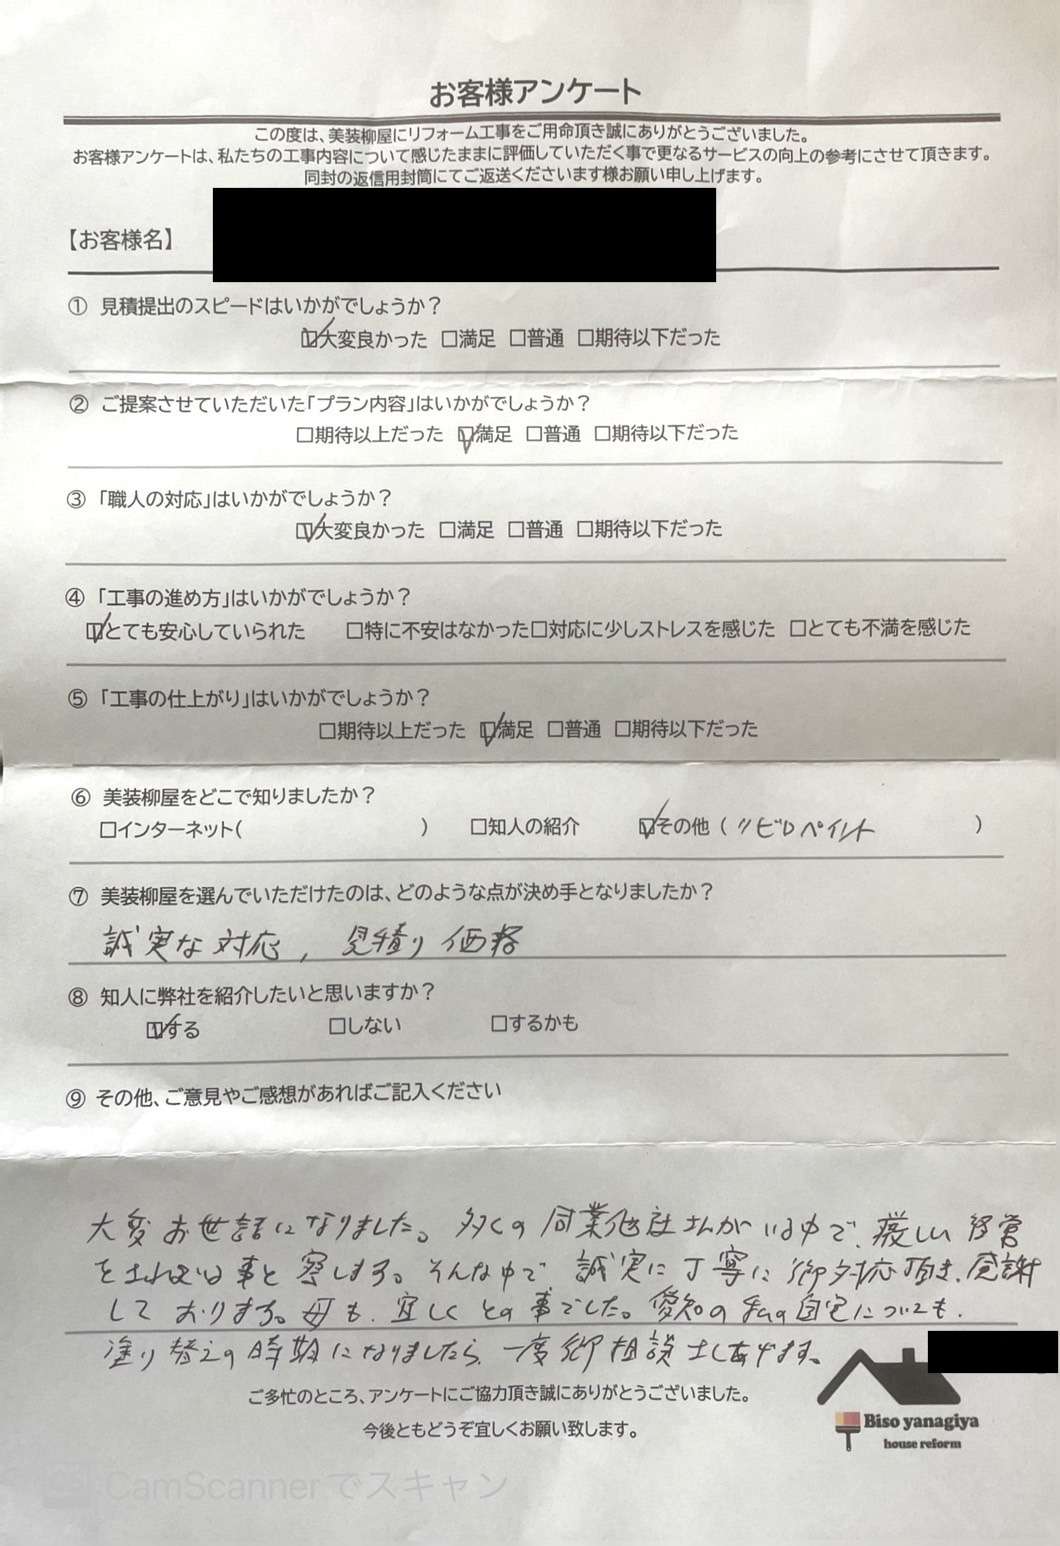 お客様アンケート
この度は、美装柳屋にリフォーム工事をご用命頂き誠にありがとうございました。
お客様アンケートは、私たちの工事内容について感じたままに評価していただく事で更なるサービスの向上の参考にさせて頂きます。
同封の返信用封筒にてご返送くださいます様お願い申し上げます。
【お客様名】
① 見積提出のスピードはいかがでしょうか？
☑大変良かった □満足 □普通 □期待以下だった
② ご提案させていただいた「プラン内容」はいかがでしょうか？
□期待以上だった ☑満足 □普通 □期待以下だった
③ 「職人の対応」はいかがでしょうか？
☑大変良かった □満足 □普通 □期待以下だった
④ 「工事の進め方」はいかがでしょうか？
☑とても安心していられた □特に不安はなかった□対応に少しストレスを感じた □とても不満を感じた
⑤ 「工事の仕上がり」はいかがでしょうか？
□期待以上だった ☑満足 □普通 □期待以下だった
⑥ 美装柳屋をどこで知りましたか？
□インターネット( ) □知人の紹介 ☑その他 ( リビロペイント )
⑦ 美装柳屋を選んでいただけたのは、どのような点が決め手となりましたか？
誠実な対応, 見積り価格
⑧ 知人に弊社を紹介したいと思いますか？
☑する □しない □するかも
⑨ その他、ご意見やご感想があればご記入ください
大変お世話になりました。多くの同業他社さんがいる中で、厳しい経営
をされている事と察します。そんな中で、誠実に丁寧に御対応頂き、感謝
しております。母も、宜しくとの事でした。愛知の私の自宅についても、
塗り替えの時期になりましたら、一度御相談さしあげます。
ご多忙のところ、アンケートにご協力頂き誠にありがとうございました。
今後ともどうぞ宜しくお願い致します。
Biso yanagiya
house reform
CamScannerでスキャン